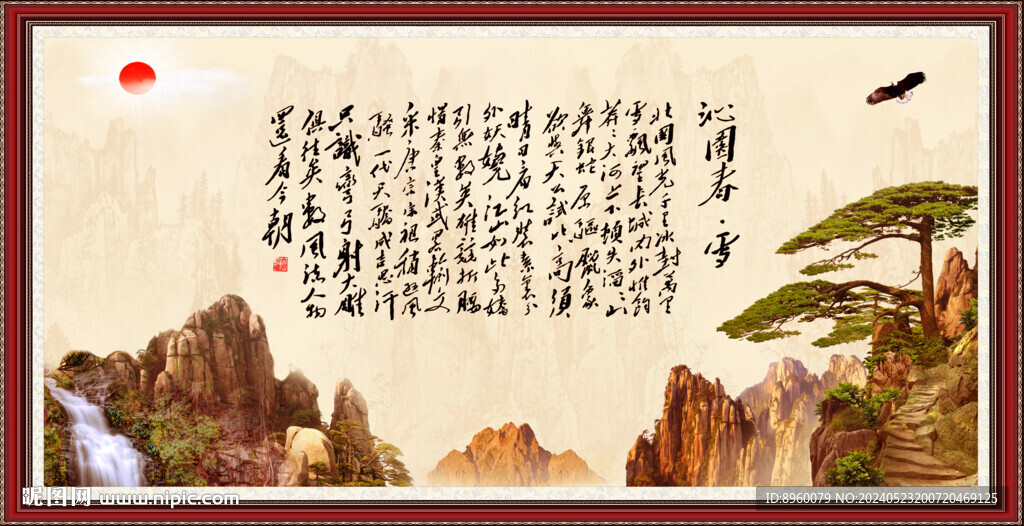 沁園春·雪
北國風光千里冰封萬里
雪飄望長城内外惟餘
莽々大河上下頓失滔々山
舞銀蛇原驅臘象
欲與天公試比高須
晴日看紅裝素裹分
外妖嬈江山如此多嬌
引無數英雄競折腰
惜秦皇漢武略輸文
采唐宗宋祖稍遜風
騷一代天驕成吉思汗
只識彎弓射大雕
俱往矣數風流人物
還看今朝
昵图网 www.nipic.com
ID:8960079 NO:20240523200720469125